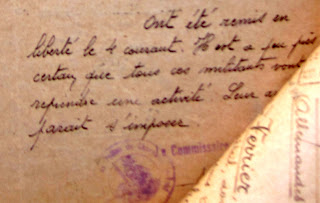 Ont été remis en
liberté le 4 courant. Il est a peu près
certain que tous ces militants vont
reprendre une activité. Leur
parait s'imposer
Commissaire
Allemandes